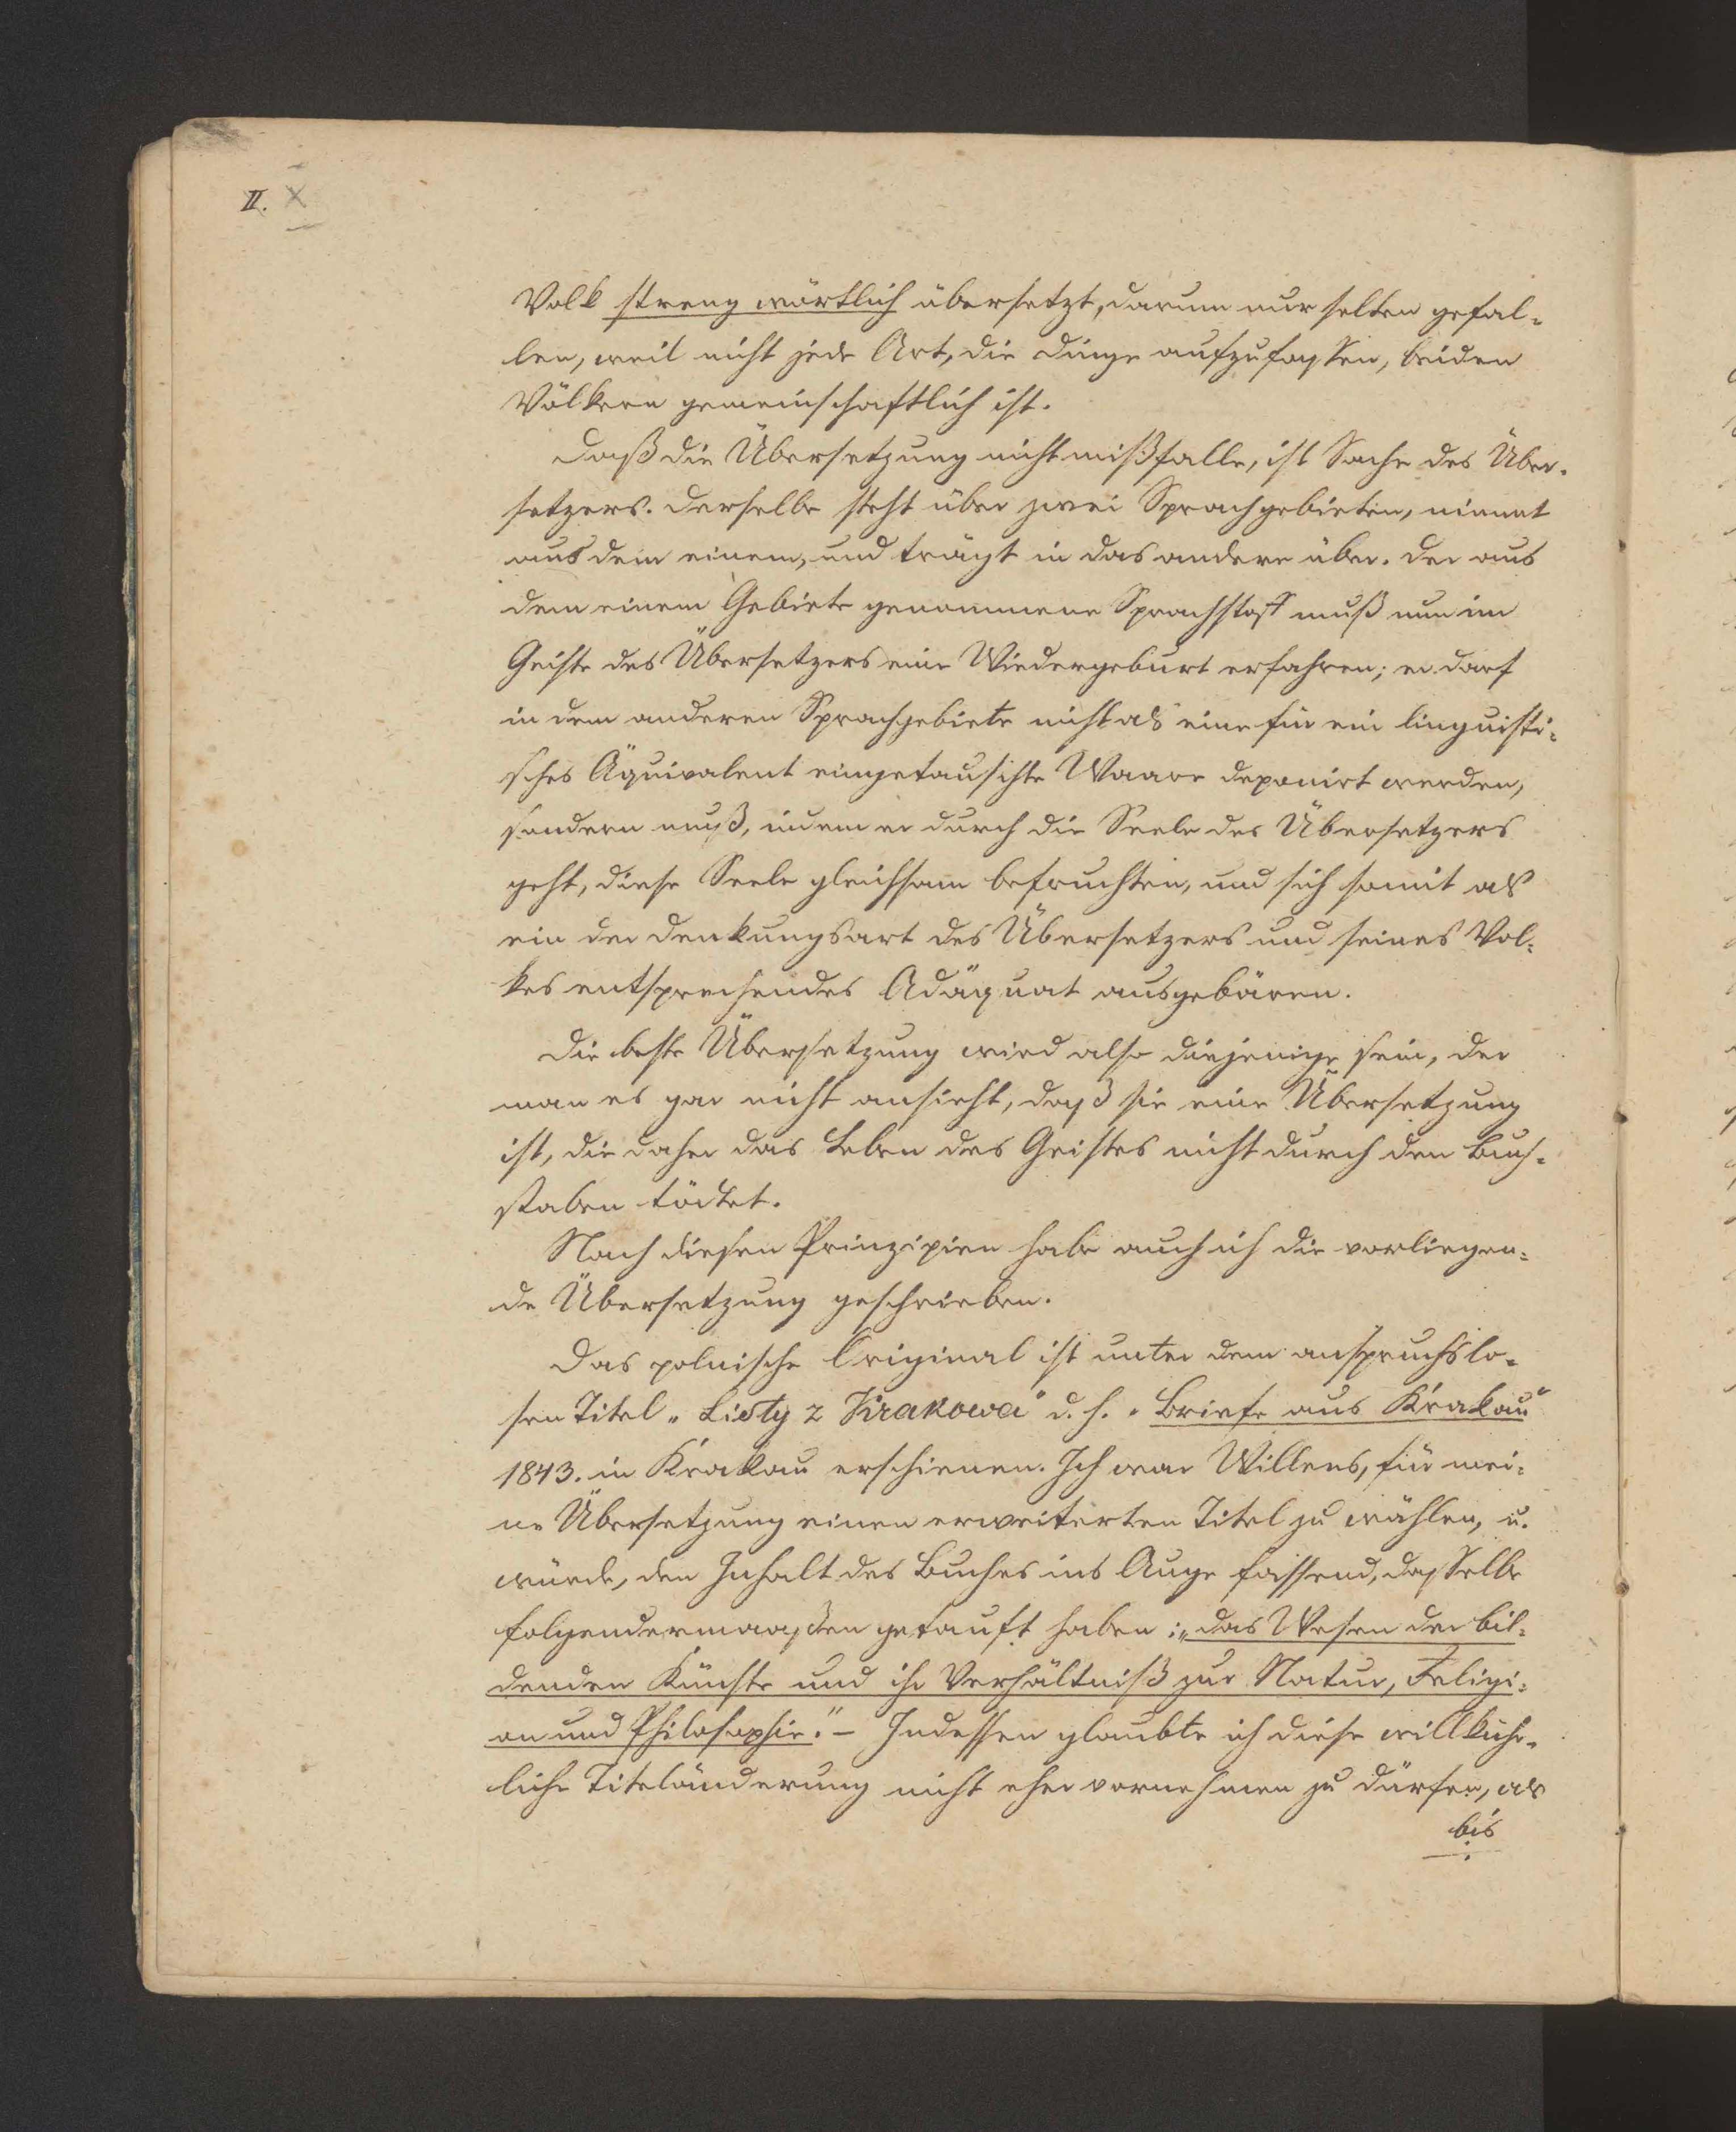 II. X
Volk streng wörtlich übersetzt, darum nur selten gefal-
len, weil nicht jede Art, die Dinge aufzufassen, beiden
Völkern gemeinschaftlich ist.
Daß die Übersetzung nicht mißfalle, ist Sache des Über-
setzers. Derselbe steht über zwei Sprachgebieten, nimmt
aus dem einem, und trägt in das andere über. Der aus
dem einem Gebiete genommene Sprachstoff muß nun im
Geiste des Übersetzers eine Wiedergeburt erfahren; er darf
in dem anderen Sprachgebiete nicht als eine für ein linguisti-
sches Äquivalent eingetauschte Waare deponirt werden,
sondern muß, indem er durch die Seele des Übersetzers
geht, diese Seele gleichsam befruchten, und sich somit als
ein der Denkungsart des Übersetzers und seines Vol-
kes entsprechendes Adäquat ausgebären.
Die beste Übersetzung wird also diejenige sein, der
man es gar nicht ansieht, daß sie eine Übersetzung
ist, die daher das Leben des Geistes nicht durch den Buch-
staben tödtet.
Nach diesen Prinzipien habe auch ich die vorliegen-
de Übersetzung geschrieben.
Das polnische Original ist unter dem anspruchslo-
sen Titel „Listy z Krakowa" d. h. „Briefe aus Krakau"
1843. in Krakau erschienen. Ich war Willens, für mei-
ne Übersetzung einen erweiterten Titel zu wählen, u.
würde, den Inhalt des Buches ins Auge fassend, dasselbe
folgendermaaßen getauft haben: „das Wesen der bil-
denden Künste und ihr Verhältniß zur Natur, Religi-
on und Philosophie." – Indessen glaubte ich diese willkühr-
liche Titeländerung nicht eher vornehmen zu dürfen, als
bis